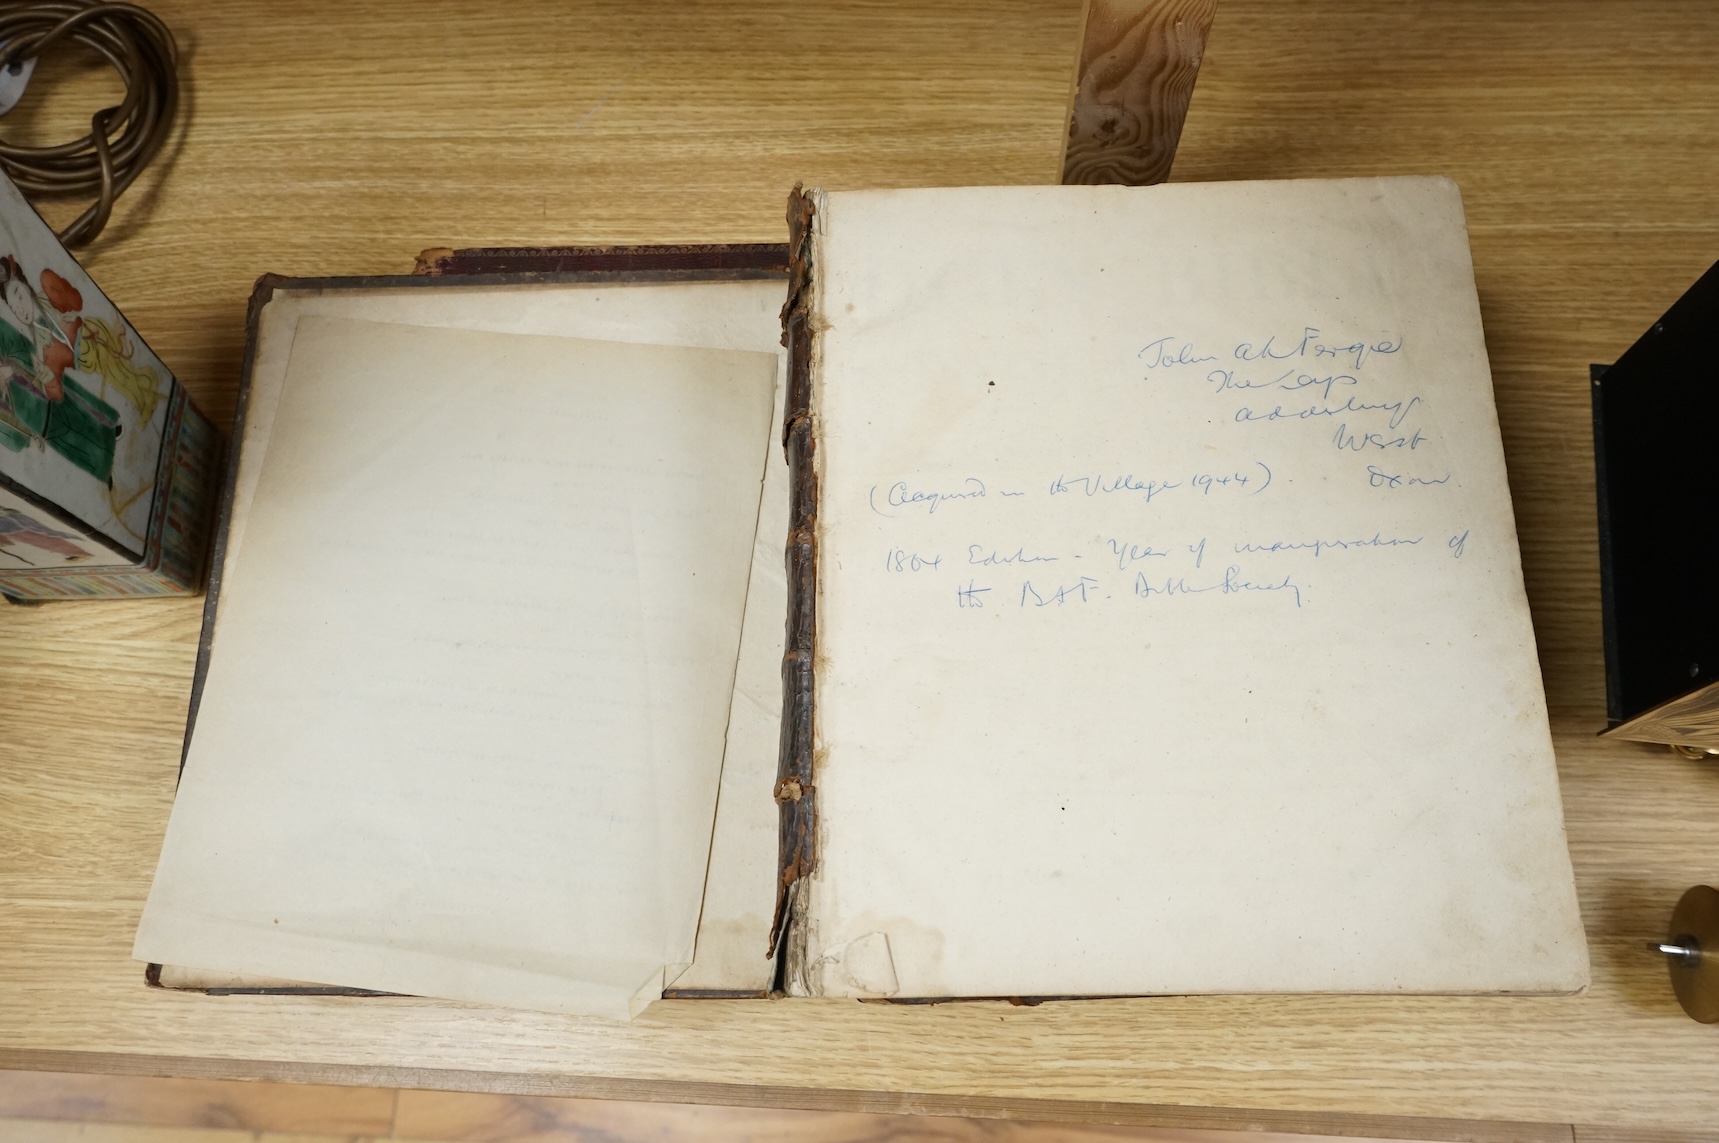 John A K Fergie
The Leys
Adderbury
West
(Acquired in the Village 1944). Oxon.
1804 Edition - Year of inauguration of
the B & F. Bible Society.